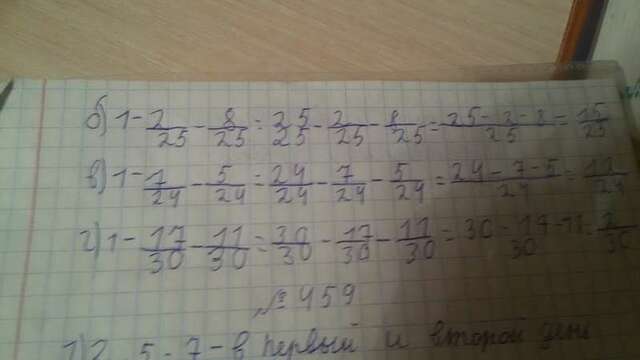 б) 1 - 2/25 - 8/25 = 25/25 - 2/25 - 8/25 = 25 - 2 - 8/25 = 15/25
в) 1 - 7/24 - 5/24 = 24/24 - 7/24 - 5/24 = 24 - 7 - 5/24 = 12/24
г) 1 - 17/30 - 11/30 = 30/30 - 17/30 - 11/30 = 30 - 17 - 11/30 = 2/30
№ 459
5 - 7 - в первый и второй день